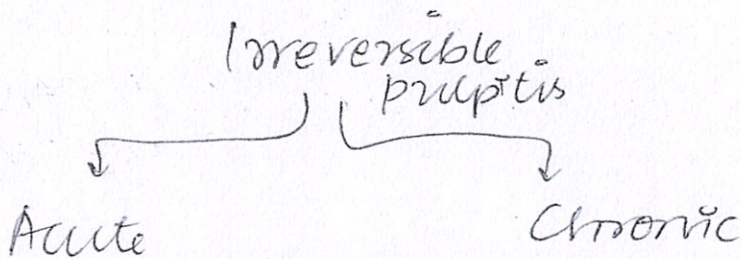 Irreversible
pulpitis
Acute
Chronic